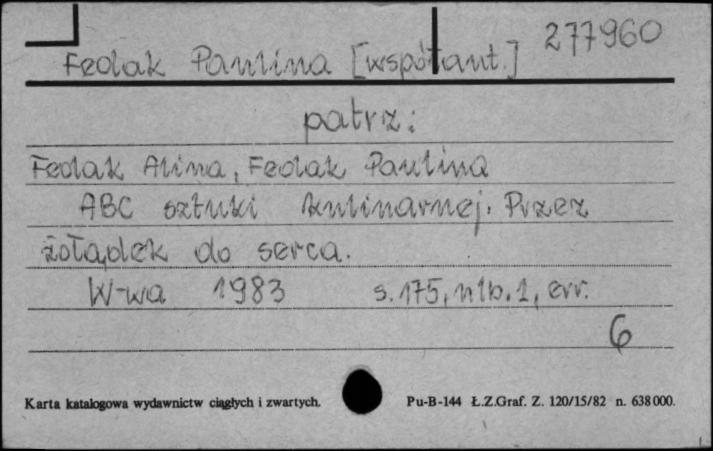 Fedak Paulina [współaut.] 277960
patrz:
Fedak Alina, Fedak Paulina
ABC sztuki kulinarnej. Przez
żołądek do serca.
W-wa 1983 s. 175, nlb. 1, err.
6
Karta katalogowa wydawnictw ciągłych i zwartych. Pu-B-144 Ł.Z.Graf. Z. 120/15/82 n. 638000.